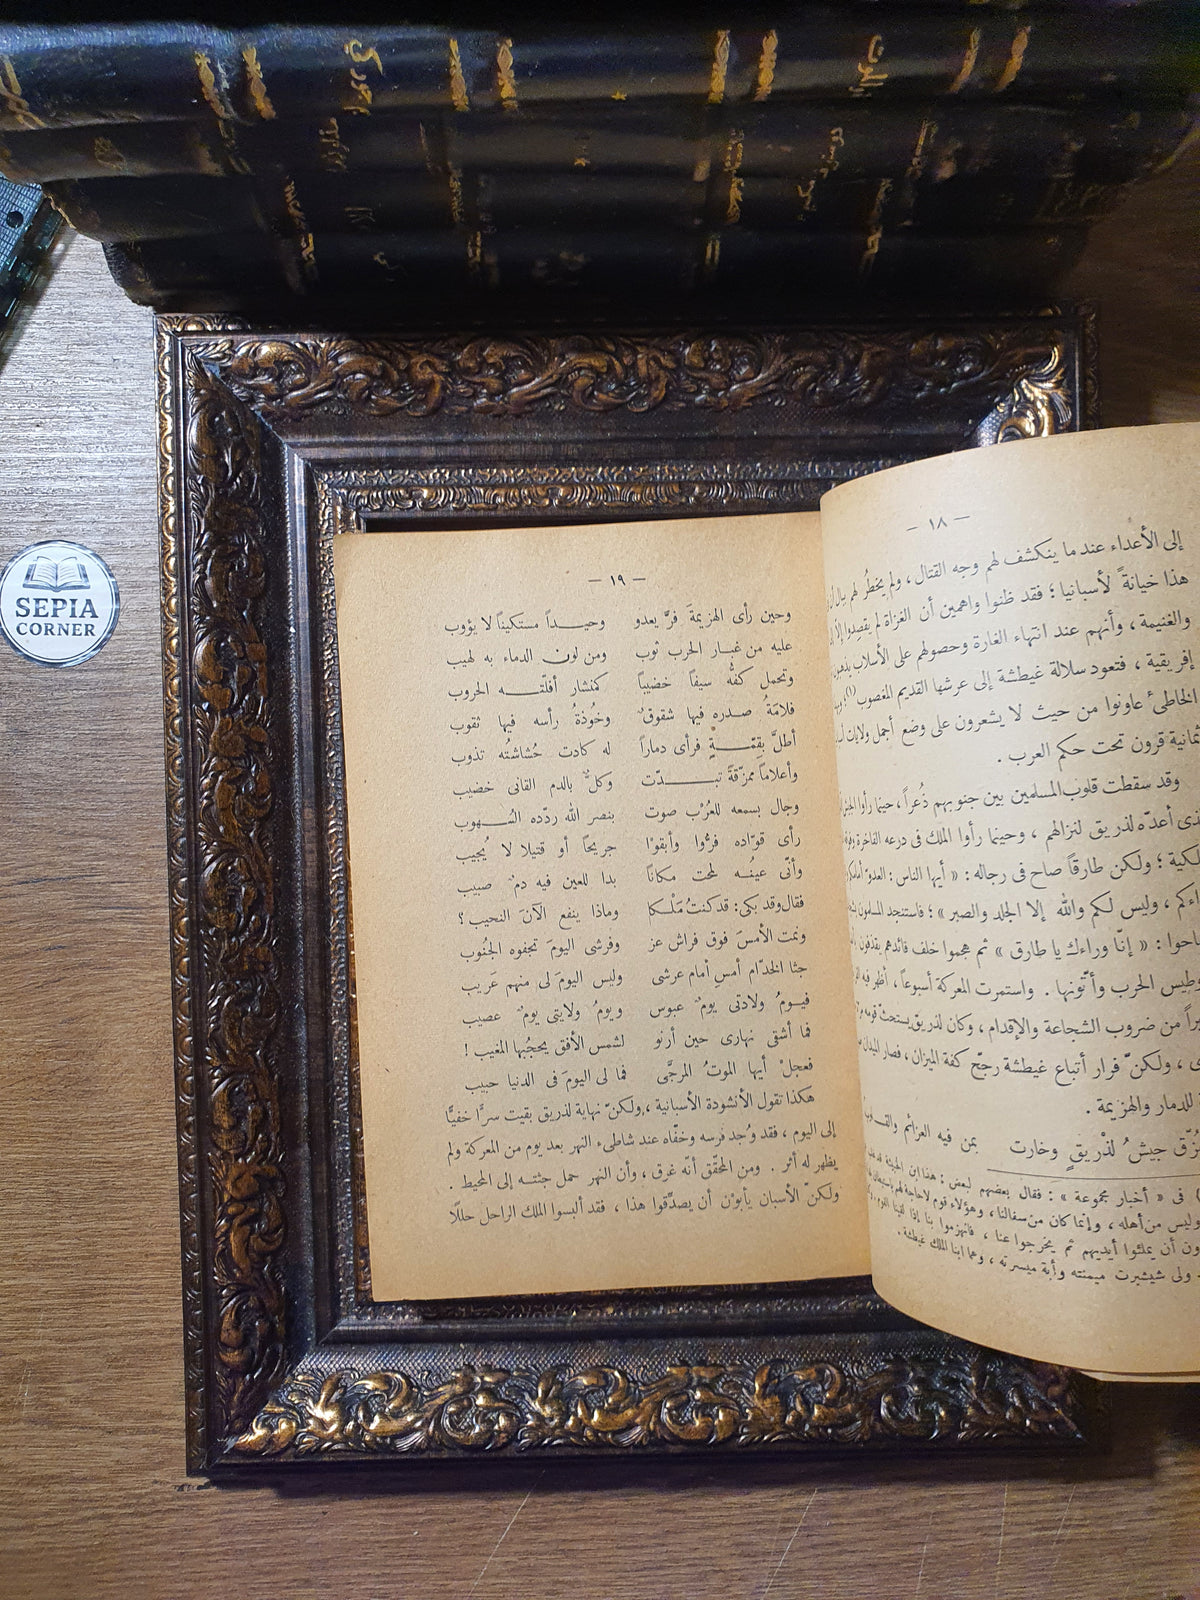 SEPIA
CORNER
— ١٨ —
إلى الأعداء عند ما ينكشف لهم وجه القتال ، ولم يخطُر لهم ببال أن
هذا خيانةً لأسبانيا ؛ فقد ظنوا واهمين أن الغزاة لم يقصدوا إلّا
والغنيمة ، وأنهم عند انتهاء الغارة وحصولهم على الأسلاب يذهبون
إفريقية ، فتعود سلالة غيطشة إلى عرشها القديم المغصوب (١)
الخاطئ عاونوا من حيث لا يشعرون على وضع أجمل ولايات
ثمانية قرون تحت حكم العرب .
وقد سقطت قلوب المسلمين بين جنوبهم ذُعراً ، حينما رأوا
الذى أعدّه لذريق لنزالهم ، وحينما رأوا الملك فى درعه الفاخرة
؛ ولكن طارقاً صاح فى رجاله : « أيها الناس : العدوّ أمامكم
، وليس لكم والله إلا الجلَد والصبر » ؛ فاستنجد المسلمون
: « إنّا وراءك يا طارق » ثم هجموا خلف قائدهم يقذفون
وطيس الحرب وأتّونها . واستمرت المعركة أسبوعاً ، أظهر فيه
من ضروب الشجاعة والإقدام ، وكان لذريق يستحثّ قومه
، ولكنّ فرار أتباع غيطشة رجّح كفة الميزان ، فصار الميدان
للدمار والهزيمة .
جيشُ لذْريقٍ وخارت بمن فيه العزائم والقلوب
فى « أخبار مجموعة » : فقال بعضهم لبعض : هذا ابن الخبيثة قد غلب
وليس من أهله ، وإنما كان من سفالنا ، وهؤلاء قوم لا حاجة لهم
أن يملئوا أيديهم ثم يخرجوا عنا ، فانهزموا بنا إذا لقينا القوم
ولى شيشبرت ميمنته وأبة ميسرته ، وهما ابنا الملك غيطشة .
— ١٩ —
وحين رأى الهزيمةَ فرَّ يعدو وحيـداً مستكيناً لا يؤوب
عليه من غبار الحرب ثوب ومن لون الدماء به لهيب
وتحمل كفُّه سيفاً خضيباً كمنشار أفلّتـه الحروب
فلامَةُ صدره فيها شقوقٌ وخُوذةُ رأسه فيها ثقوب
أطلَّ بقِمّـةٍ فرأى دماراً له كادت حُشاشتُه تذوب
وأعلاماً ممزّقةً تبـدّت وكلٌّ بالدم القانى خضيب
وجال بسمعه للعُرْب صوت بنصر الله ردّده السُهوب
رأى قوّاده فرُّوا وأبقوْا جريحًا أو قتيلا لا يُجيب
وأنّى عينُـه لمحت مكانًا بدا للعين فيه دمٌ صبيب
فقال وقد بكى : قد كنتُ مَلْكا وماذا ينفع الآنَ النحيب ؟
ونمت الأمسَ فوق فراش عز وفرشى اليومَ تجفوه الجنُوب
جثا الخدّام أمسِ أمام عرشى وليس اليومَ لى منهم عَريب
فيـومُ ولادتى يومٌ عبوس ويومُ ولايتى يومٌ عصيب
فما أشقى نهارى حين أرنو لشمس الأفق يحجُبها المغيب !
فعجلْ أيها الموتُ المرجَّى فما لى اليومَ فى الدنيا حبيب
هكذا تقول الأنشودة الأسبانية ، ولكنّ نهاية لذريق بقيت سرًّا خفيًّا
إلى اليوم ، فقد وُجد فرسه وخفّاه عند شاطىء النهر بعد يوم من المعركة ولم
يظهر له أثر . ومن المحقّق أنّه غرق ، وأن النهر حمل جثتـه إلى المحيط .
ولكنّ الأسبان يأبوْن أن يصدّقوا هذا ، فقد ألبسوا الملك الراحل حللًا